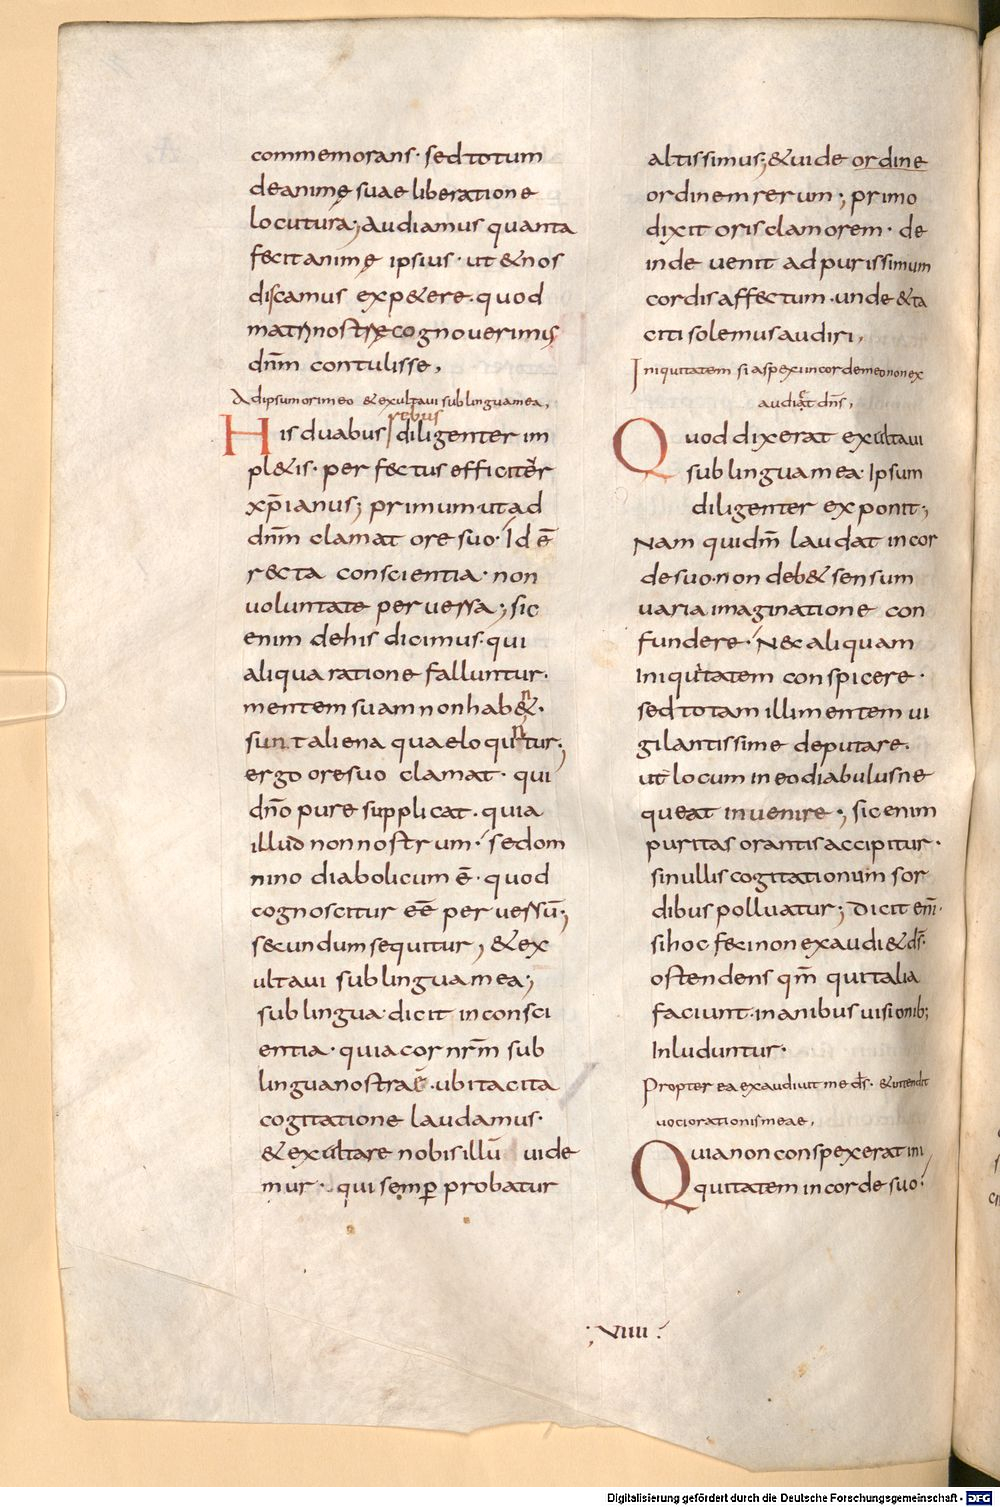 commemorans · sed totum
de animę suae liberatione
locutura; Audiamus quanta
fecit animę ipsius · ut & nos
discamus exp&ere · quod
matri nostrę cognoverimus
dnm̄ contulisse,
Ad ipsum ore meo & exultaui sub lingua mea,
His duabus rebus diligenter im
pl&is · perfectus efficiter
xp̄ianus; primum · ut ad
dnm̄ clamat ore suo · Id ē
recta conscientia · non
uoluntate peruersa; sic
enim de his dicimus · qui
aliqua ratione falluntur ·
mentem suam non hab&̄ ·
sunt aliena quae loquntur;
ergo ore suo clamat · qui
dn̄o pure supplicat · quia
illud non nostrum · sed om
nino diabolicum ē · quod
cognoscitur eē peruersū;
secundum sequitur, & ex
ultaui sub lingua mea;
sub lingua · dicit in consci
entia · quia cor nrm̄ sub
lingua nostra ē · ubi tacita
cogitatione laudamus ·
& exultare nobis illū uide
mur · qui semp̄ probatur
altissimus; & uide ordine
ordinem rerum; primo
dixit oris clamorem · de
inde uenit ad purissimum
cordis affectum · unde & ta
citi solemus audiri,
Iniquitatem si aspexi in corde meo non ex
audiat dns̄,
Quod dixerat exultaui
sub lingua mea · Ipsum
diligenter exponit;
Nam quidm̄ laudat in cor
de suo · non deb& sensum
uaria imaginatione con
fundere · Nec aliquam
Iniquitatem conspicere ·
sed totam illi mentem ui
gilantissime deputare ·
ut locum in eo diabulus ne
queat inuenire; sic enim
puritas orantis accipitur ·
si nullis cogitationum sor
dibus polluatur; Dicit enī ·
si hoc feci non exaudi& ds̄ ·
ostendens qm̄ qui talia
faciunt · in anibus uisionib;
Inluduntur ·
Propterea exaudiuit me ds̄ · & intendit
uoci orationis meae,
Quia non conspexerat ini
quitatem in corde suo ·
· VIIII ·
Digitalisierung gefördert durch die Deutsche Forschungsgemeinschaft - DFG